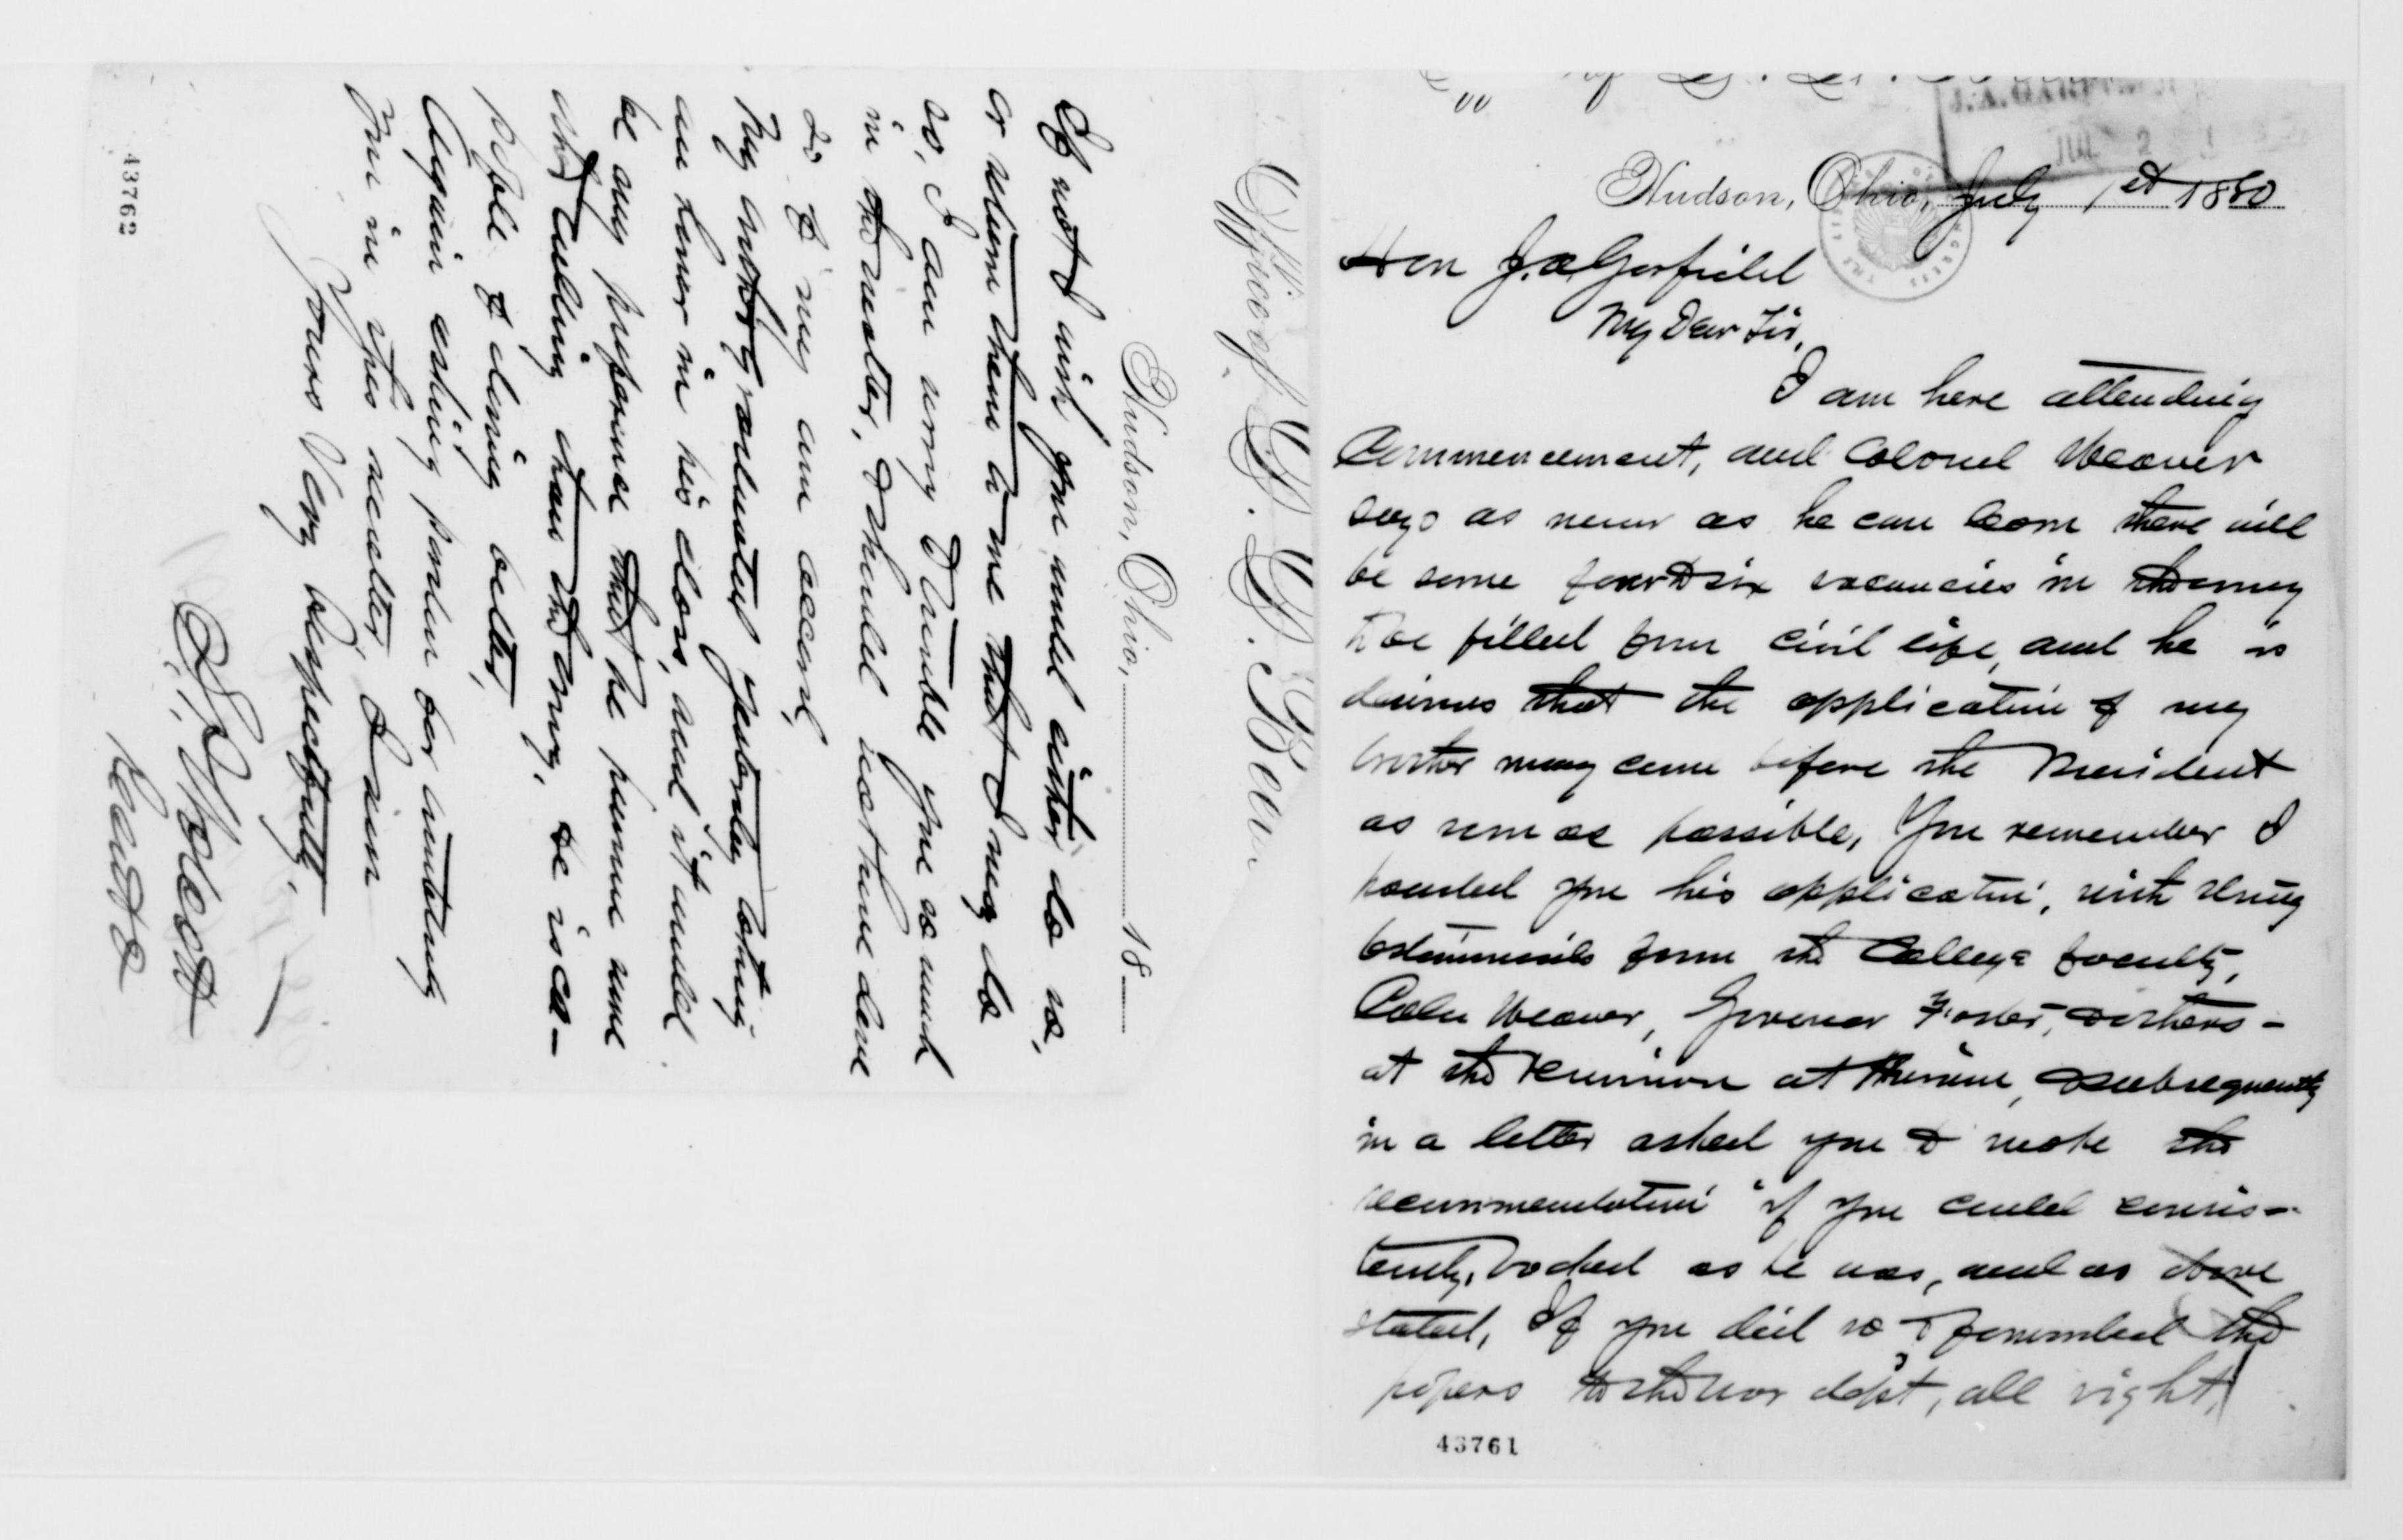 J. A. GARFIELD
JUL 2
Hudson, Ohio, July 1st 1880
Hon J. A. Garfield
My Dear Sir,
I am here attending
Commencement, and Colonel Weaver
says as near as he can learn there will
be some four to six vacancies in the army
to be filled from civil life, and he is
desirous that the application of my
brother may come before the President
as soon as possible, You remember I
handed you his application, with strong
testimonials from the College faculty,
Colm Weaver, Governor Foster, & others –
at the reunion at & subsequently
in a letter asked you to make the
recommendation if you could consis-
tently, backed as he was, and as above
stated, If you did so & forwarded the
papers to the War dept, all right,
43761
Office of D. D. Bee
Hudson, Ohio, 18
If not I wish you would either do so,
or return them to me that I may do
so, I am sorry to trouble you so much
in the matter, I should not have done
so to my own account,
My brother graduated yesterday taking
an honor in his class, and it would
be my preference that he pursue some
other calling than the army, he is ca-
pable of doing better,
Again asking pardon for troubling
you in this matter, I am
Yours Very Respectfully,
43762